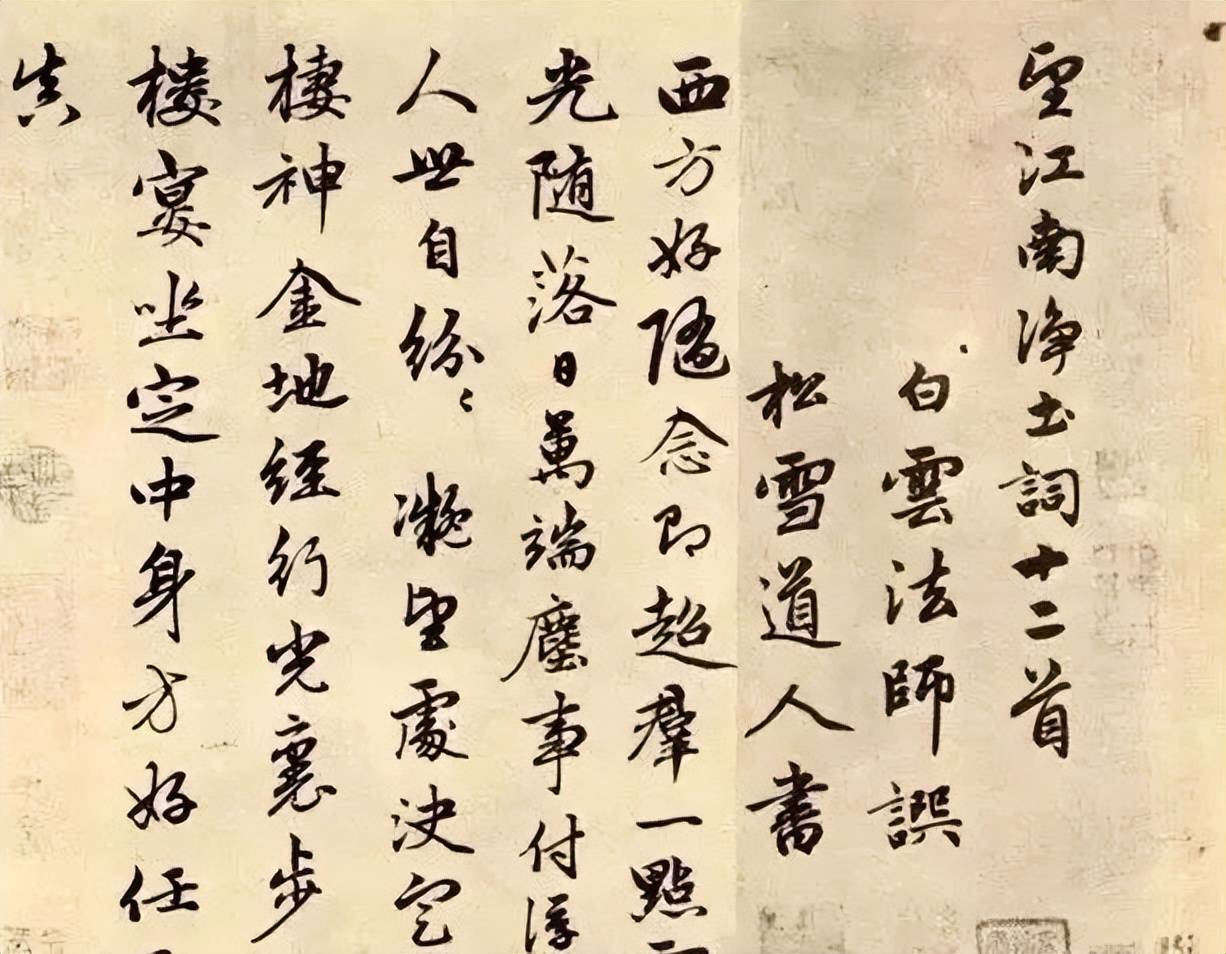 望江南淨土詞十二首
白雲法師譔
松雪道人書
西方好隨念即超羣一點
光隨落日萬端塵事付浮
人世自紛〻凝望處決定
棲神金地經行光裏步
樓宴坐定中身方好任
真